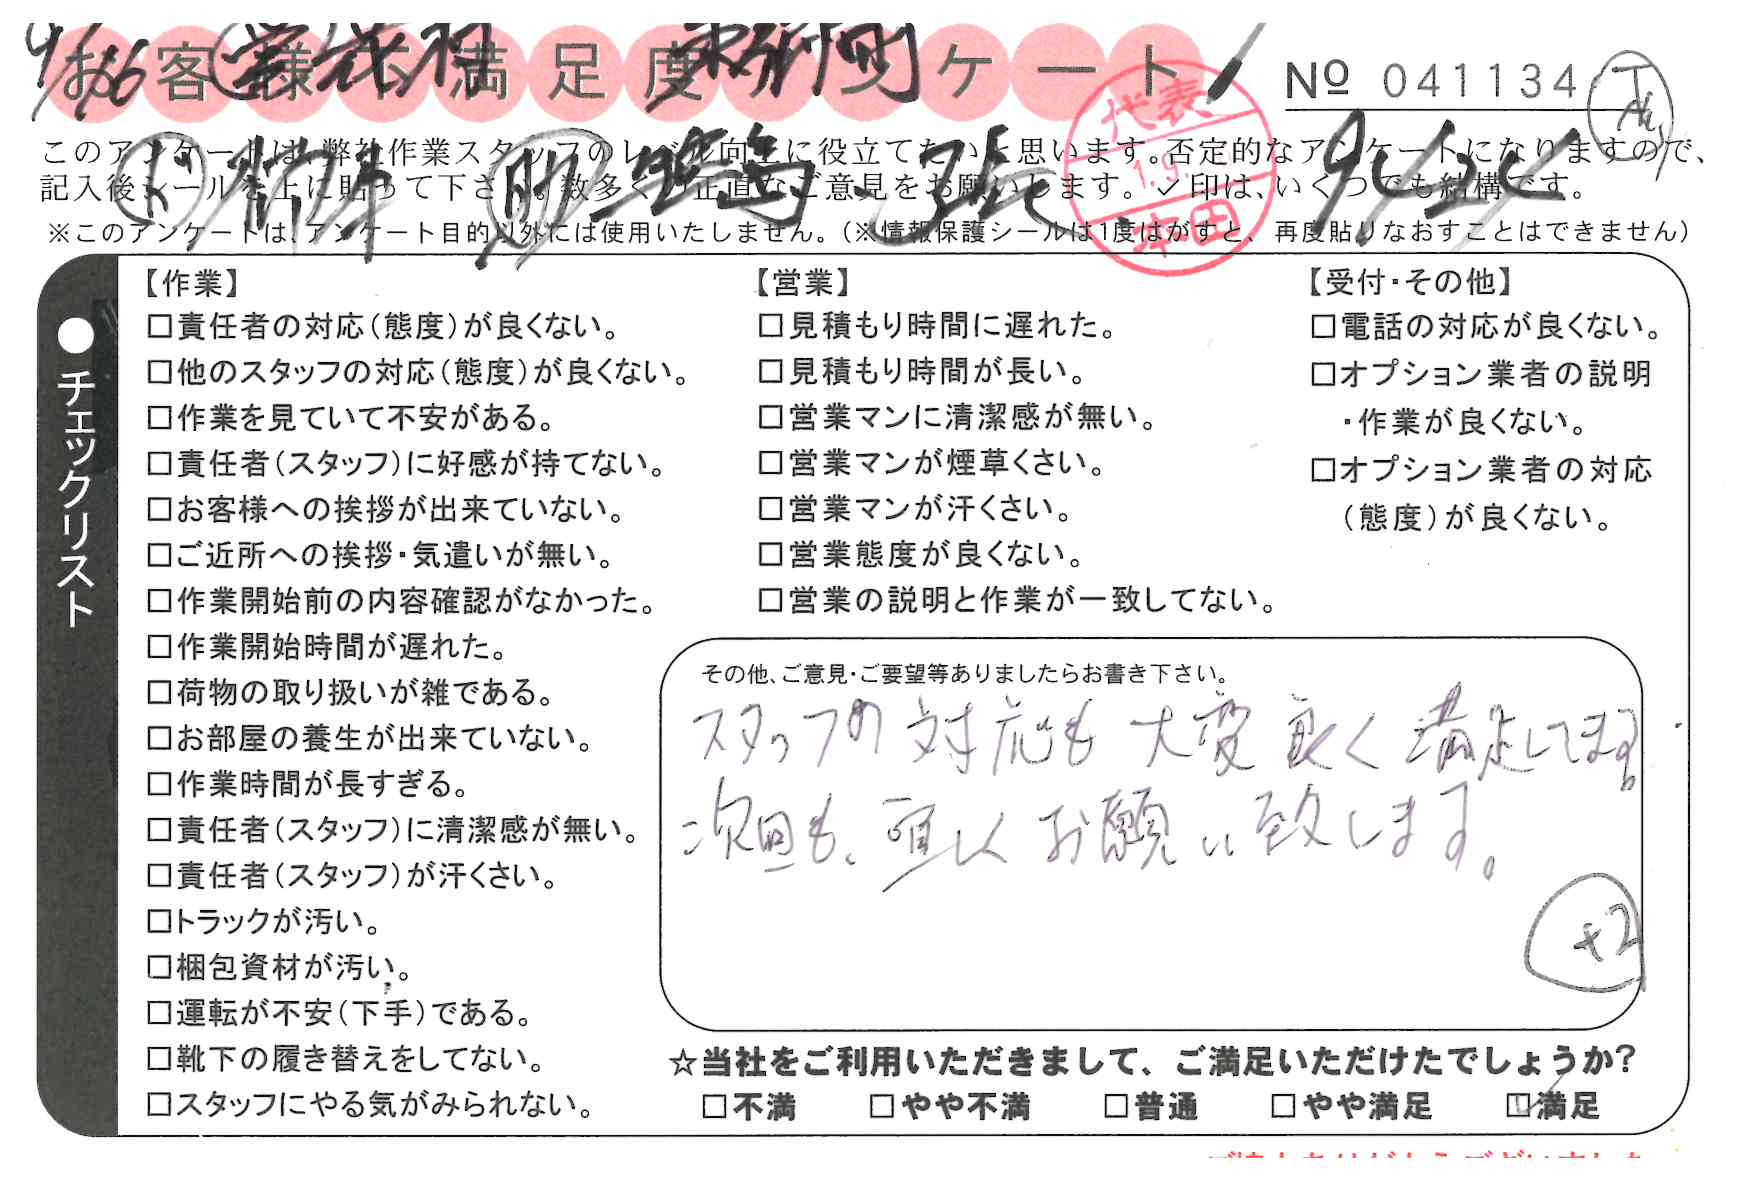 お客様不満足度アンケート
№ 041134
このアンケートは、弊社作業スタッフのレベル向上に役立てたいと思います。否定的なアンケートになりますので、
記入後シールを上に貼って下さい。数多くの正直なご意見をお願いします。✓印は、いくつでも結構です。
※このアンケートは、アンケート目的以外には使用いたしません。(※情報保護シールは1度はがすと、再度貼りなおすことはできません)
代表
1.9.
●チェックリスト
【作業】
□責任者の対応(態度)が良くない。
□他のスタッフの対応(態度)が良くない。
□作業を見ていて不安がある。
□責任者(スタッフ)に好感が持てない。
□お客様への挨拶が出来ていない。
□ご近所への挨拶・気遣いが無い。
□作業開始前の内容確認がなかった。
□作業開始時間が遅れた。
□荷物の取り扱いが雑である。
□お部屋の養生が出来ていない。
□作業時間が長すぎる。
□責任者(スタッフ)に清潔感が無い。
□責任者(スタッフ)が汗くさい。
□トラックが汚い。
□梱包資材が汚い。
□運転が不安(下手)である。
□靴下の履き替えをしてない。
□スタッフにやる気がみられない。
【営業】
□見積もり時間に遅れた。
□見積もり時間が長い。
□営業マンに清潔感が無い。
□営業マンが煙草くさい。
□営業マンが汗くさい。
□営業態度が良くない。
□営業の説明と作業が一致してない。
【受付・その他】
□電話の対応が良くない。
□オプション業者の説明
・作業が良くない。
□オプション業者の対応
(態度)が良くない。
その他、ご意見・ご要望等ありましたらお書き下さい。
スタッフの対応も大変良く満足してます。
次回も、宜しくお願い致します。
+2
☆当社をご利用いただきまして、ご満足いただけたでしょうか?
□不満 □やや不満 □普通 □やや満足 ☑満足